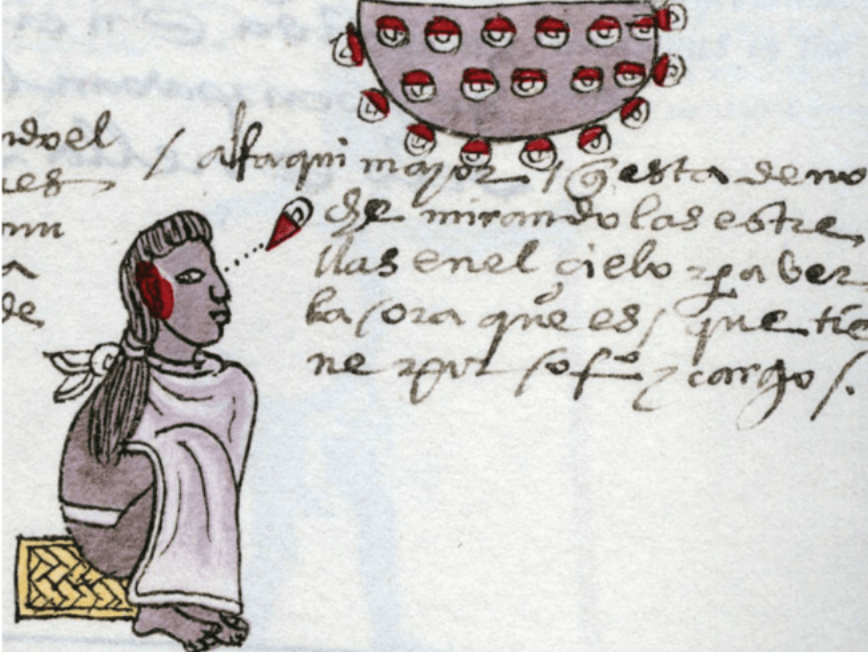 ndo el
res
mu
a
de
/ alfaqui mayor / q esta de no
che mirando las estre
llas en el çielo pa ver
la ora que es / que tie
ne por ofº y cargo /.